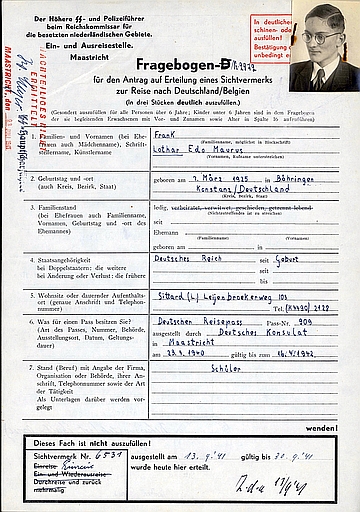 Der Höhere SS- und Polizeiführer
beim Reichskommissar für
die besetzten niederländischen Gebiete.
Ein- und Ausreisestelle.
Maastricht
In deutlicher
ausfüllen!
Bestätigung
unbedingt
Fragebogen-D
für den Antrag auf Erteilung eines Sichtvermerks
zur Reise nach Deutschland/Belgien
(In drei Stücken deutlich auszufüllen.)
(Gesondert auszufüllen für alle Personen über 6 Jahre; Kinder unter 6 Jahren sind in dem Fragebogen
der sie begleitenden Erwachsenen mit Vor- und Zunamen sowie Alter in Spalte 16 aufzuführen)
1. Familien- und Vornamen (bei Ehefrauen auch Mädchenname), Schriftstellername, Künstlername
Frank
(Familienname, möglichst in Blockschrift)
Lothar Edo Maurus
(Vornamen, Rufname unterstreichen)
2. Geburtstag und -ort
(auch Kreis, Bezirk, Staat)
geboren am 7. März 1925 in Böhringen
Konstanz/Deutschland
(Kreis, Bezirk, Staat)
3. Familienstand
(bei Ehefrauen auch Familienname, Vornamen, Geburtstag und -ort des Ehemannes)
ledig, verheiratet, verwitwet, geschieden, getrennt lebend
(Nichtzutreffendes ist zu streichen)
seit
Ehemann
(Familienname) (Vornamen)
geboren am in
4. Staatsangehörigkeit
bei Doppelstaatern: die weitere
bei Änderung oder Verlust: die frühere
Deutsches Reich seit Geburt
seit
bis
5. Wohnsitz oder dauernder Aufenthaltsort (genaue Anschrift und Telephonnummer)
Sittard (L) Leijenbroekerweg 103
Tel. (K4490) 2128
6. Was für einen Pass besitzen Sie?
(Art des Passes, Nummer, Behörde, Ausstellungsort, Datum, Geltungsdauer)
Deutschen Reisepass Pass-Nr. 909
ausgestellt durch Deutsches Konsulat
in Maastricht
am 23.9.1940 gültig bis zum 16.4.1942.
7. Stand (Beruf) mit Angabe der Firma, Organisation oder Behörde, ihrer Anschrift, Telephonnummer sowie der Art der Tätigkeit
Als Unterlagen darüber werden vorgelegt
Schüler
wenden!
Dieses Fach ist nicht auszufüllen!
Sichtvermerk Nr. 6531 ausgestellt am 13.9.'41 gültig bis 30.9.'41
Einreise
Ein- und Wiederausreise
Durchreise und zurück
mehrmalig
wurde heute hier erteilt.